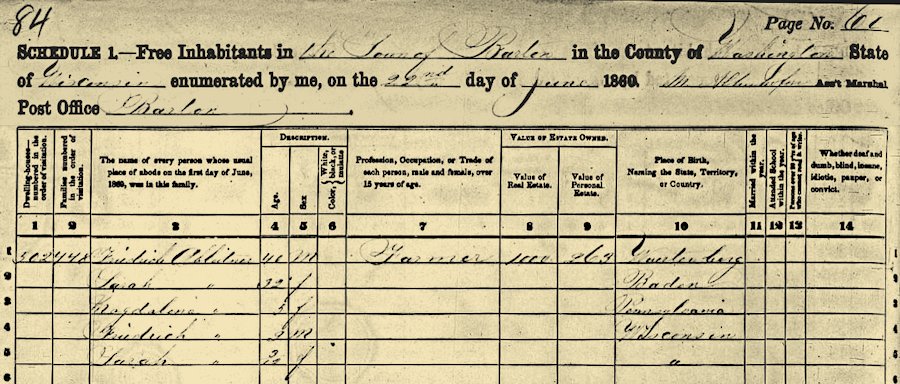 84
Page No. 61
SCHEDULE 1.—Free Inhabitants in the Town of Barton in the County of Washington State
of Wisconsin enumerated by me, on the 22nd day of June 1860. Ass't Marshal
Post Office Barton .
Dwelling-houses—numbered in the order of visitation.
Families numbered in the order of visitation.
The name of every person whose usual place of abode on the first day of June, 1860, was in this family.
DESCRIPTION.
Age.
Sex
Color, White, black, or mulatto
Profession, Occupation, or Trade of each person, male and female, over 15 years of age.
VALUE OF ESTATE OWNED.
Value of Real Estate.
Value of Personal Estate.
Place of Birth, Naming the State, Territory, or Country.
Married within the year.
Attended School within the year.
Persons over 20 y'rs of age who cannot read & write.
Whether deaf and dumb, blind, insane, idiotic, pauper, or convict.
1 2 3 4 5 6 7 8 9 10 11 12 13 14
1 Friedrich 40 m Farmer 1000 Wurtemberg 1
2 Sarah " 32 f Baden 2
3 Magdalina " 5 f Pennsylvania 3
4 Friedrich " 3 m Wisconsin 4
5 Sarah " f " 5
6 6